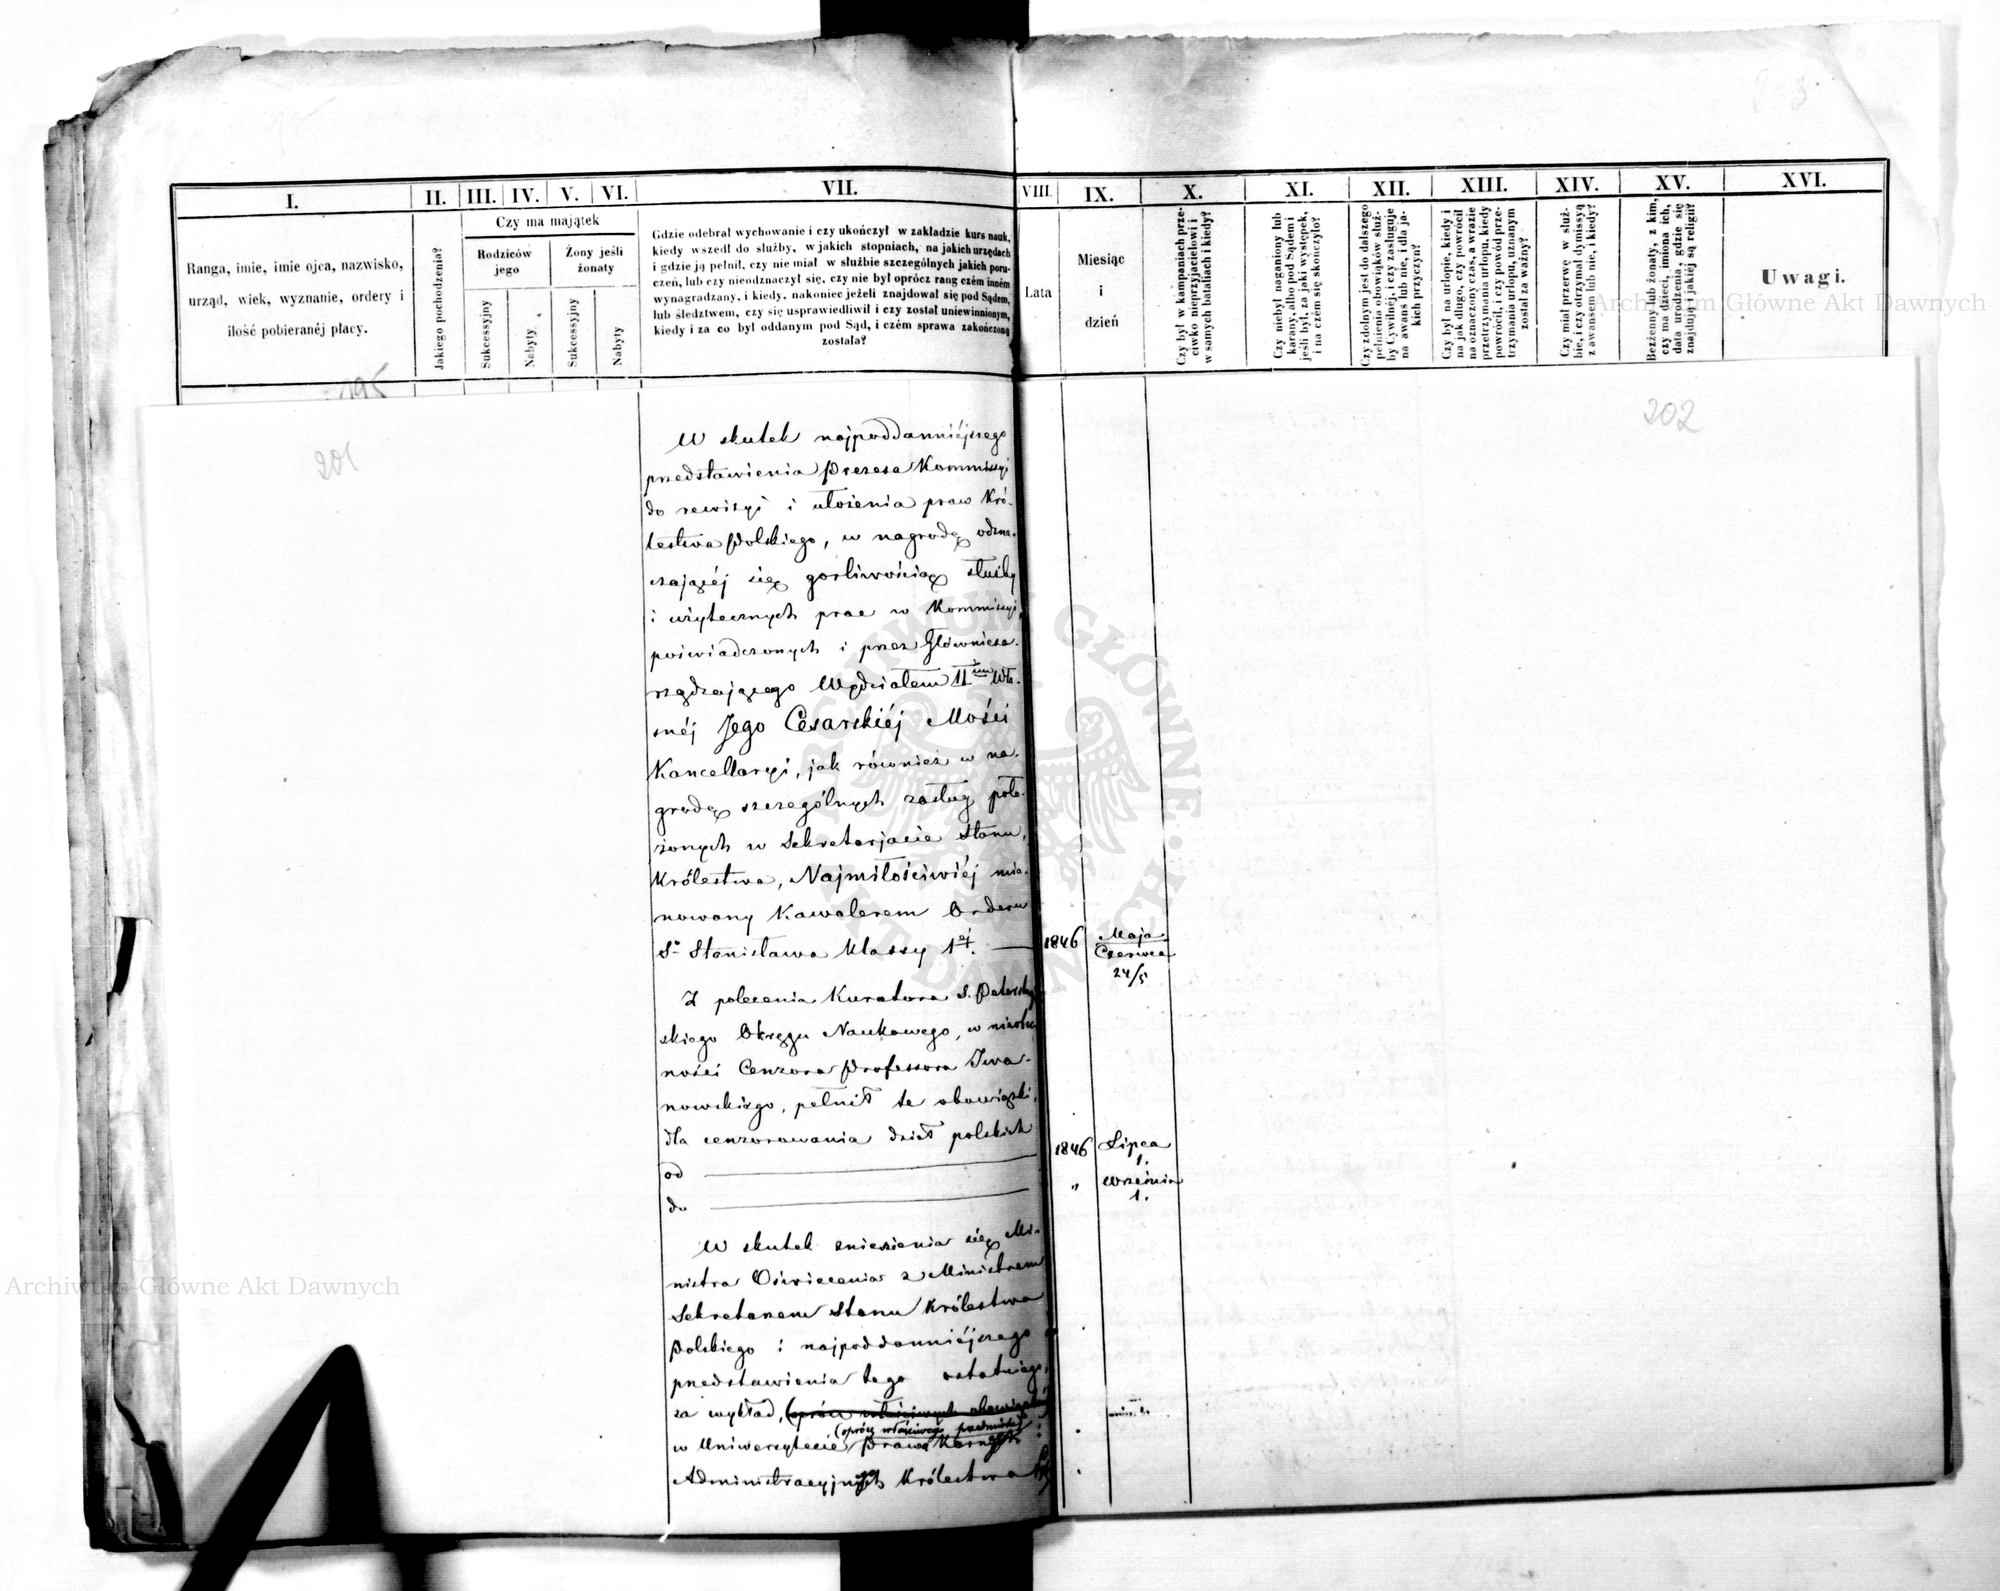 I.
II.
III.
IV.
V.
VI.
VII.
VIII.
IX.
X.
XI.
XII.
XIII.
XIV.
XV.
XVI.
Ranga, imie, imie ojca, nazwisko,
urząd, wiek, wyznanie, ordery i
ilość pobieranéj płacy.
Jakiego pochodzenia?
Czy ma majątek
Rodziców
jego
Żony jeśli
żonaty
Sukcessyjny
Nabyty
Sukcessyjny
Nabyty
Gdzie odebrał wychowanie i czy ukończył w zakładzie kurs nauk,
kiedy wszedł do służby, w jakich stopniach, na jakich urzędach
i gdzie ją pełnił, czy nie miał w służbie szczególnych jakich poru-
czeń, lub czy nieodznaczył się, czy nie był oprócz rang czém inném
wynagradzany, i kiedy, nakoniec jeżeli znajdował się pod Sądem,
lub śledztwem, czy się usprawiedliwił i czy został uniewinnionym,
kiedy i za co był oddanym pod Sąd, i czém sprawa zakończoną
została?
Lata
Miesiąc
i
dzień
Czy był w kampaniach prze-
ciwko nieprzyjacielowi i
w samych batallach i kiedy?
Czy niebył naganiony lub
karany, albo pod Sądem i
jeśli był, za jaki występek,
i na czém się skończyło?
Czy zdolnym jest do dalszego
pełnienia obowiąków służ-
by Cywilnéj, i czy zasługuje
na awans lub nie, i dla ja-
kich przyczyn?
Czy był na urlopie, kiedy i
na jak długo, czy powrócił
na oznaczony czas, a wrazie
przetrzymania urlopu, kiedy
powrócił, i czy powód prze-
trzymania urlopu, uznanym
został za ważny?
Czy miał przerwę w służ-
bie, i czy otrzymał dymissyą
z awansem lub nie, i kiedy?
Bezżenny lub żonaty, z kim,
czy ma dzieci, imiona ich,
data urodzenia, gdzie się
znajdują i jakiéj są religii?
Uwagi.
195
201
202
W skutek najpoddanniéjszego
przedstawienia Prezesa Kommissyi
do rewizyi i ułożenia praw Kró-
lestwa Polskiego, w nagrodę odzna-
czającéj się gorliwością służby
i użytecznych prac w Kommissyi,
poświadczonych i przez Głównieza-
rządzającego Wydziałem II Wła-
snéj Jego Cesarskiéj Mości
Kancellaryi, jak również w na-
grodę szczególnych zasług poło-
żonych w Sekretarjacie Stanu,
Królestwa, Najmiłościwiéj mia-
nowany Kawalerem Orderu
Sgo Stanisława Klassy 1éj. —
1846
Maja
Czerwca
24/5
Z polecenia Kuratora S. Petersbur-
skiego Okręgu Naukowego, w nieobec-
ności Cenzora Professora Iwa-
nowskiego, pełnił te obowiązki,
dla cenzorowania dzieł polskich
od
1846
Lipca
1.
do
„
Września
1.
W skutek zniesienia się Mi-
nistra Oświecenia z Ministrem
Sekretarzem Stanu Królestwa
Polskiego i najpoddanniéjszego
przedstawienia tego ostatniego,
za wykład, (oprócz właściwych obowiązków)
(oprócz właściwego przedmiotu)
w Uniwersytecie Prawa Karnego i
Administracyjnego Królestwa
ARCHIWUM GŁÓWNE AKT DAWNYCH
Archiwum Główne Akt Dawnych
Archiwum Główne Akt Dawnych